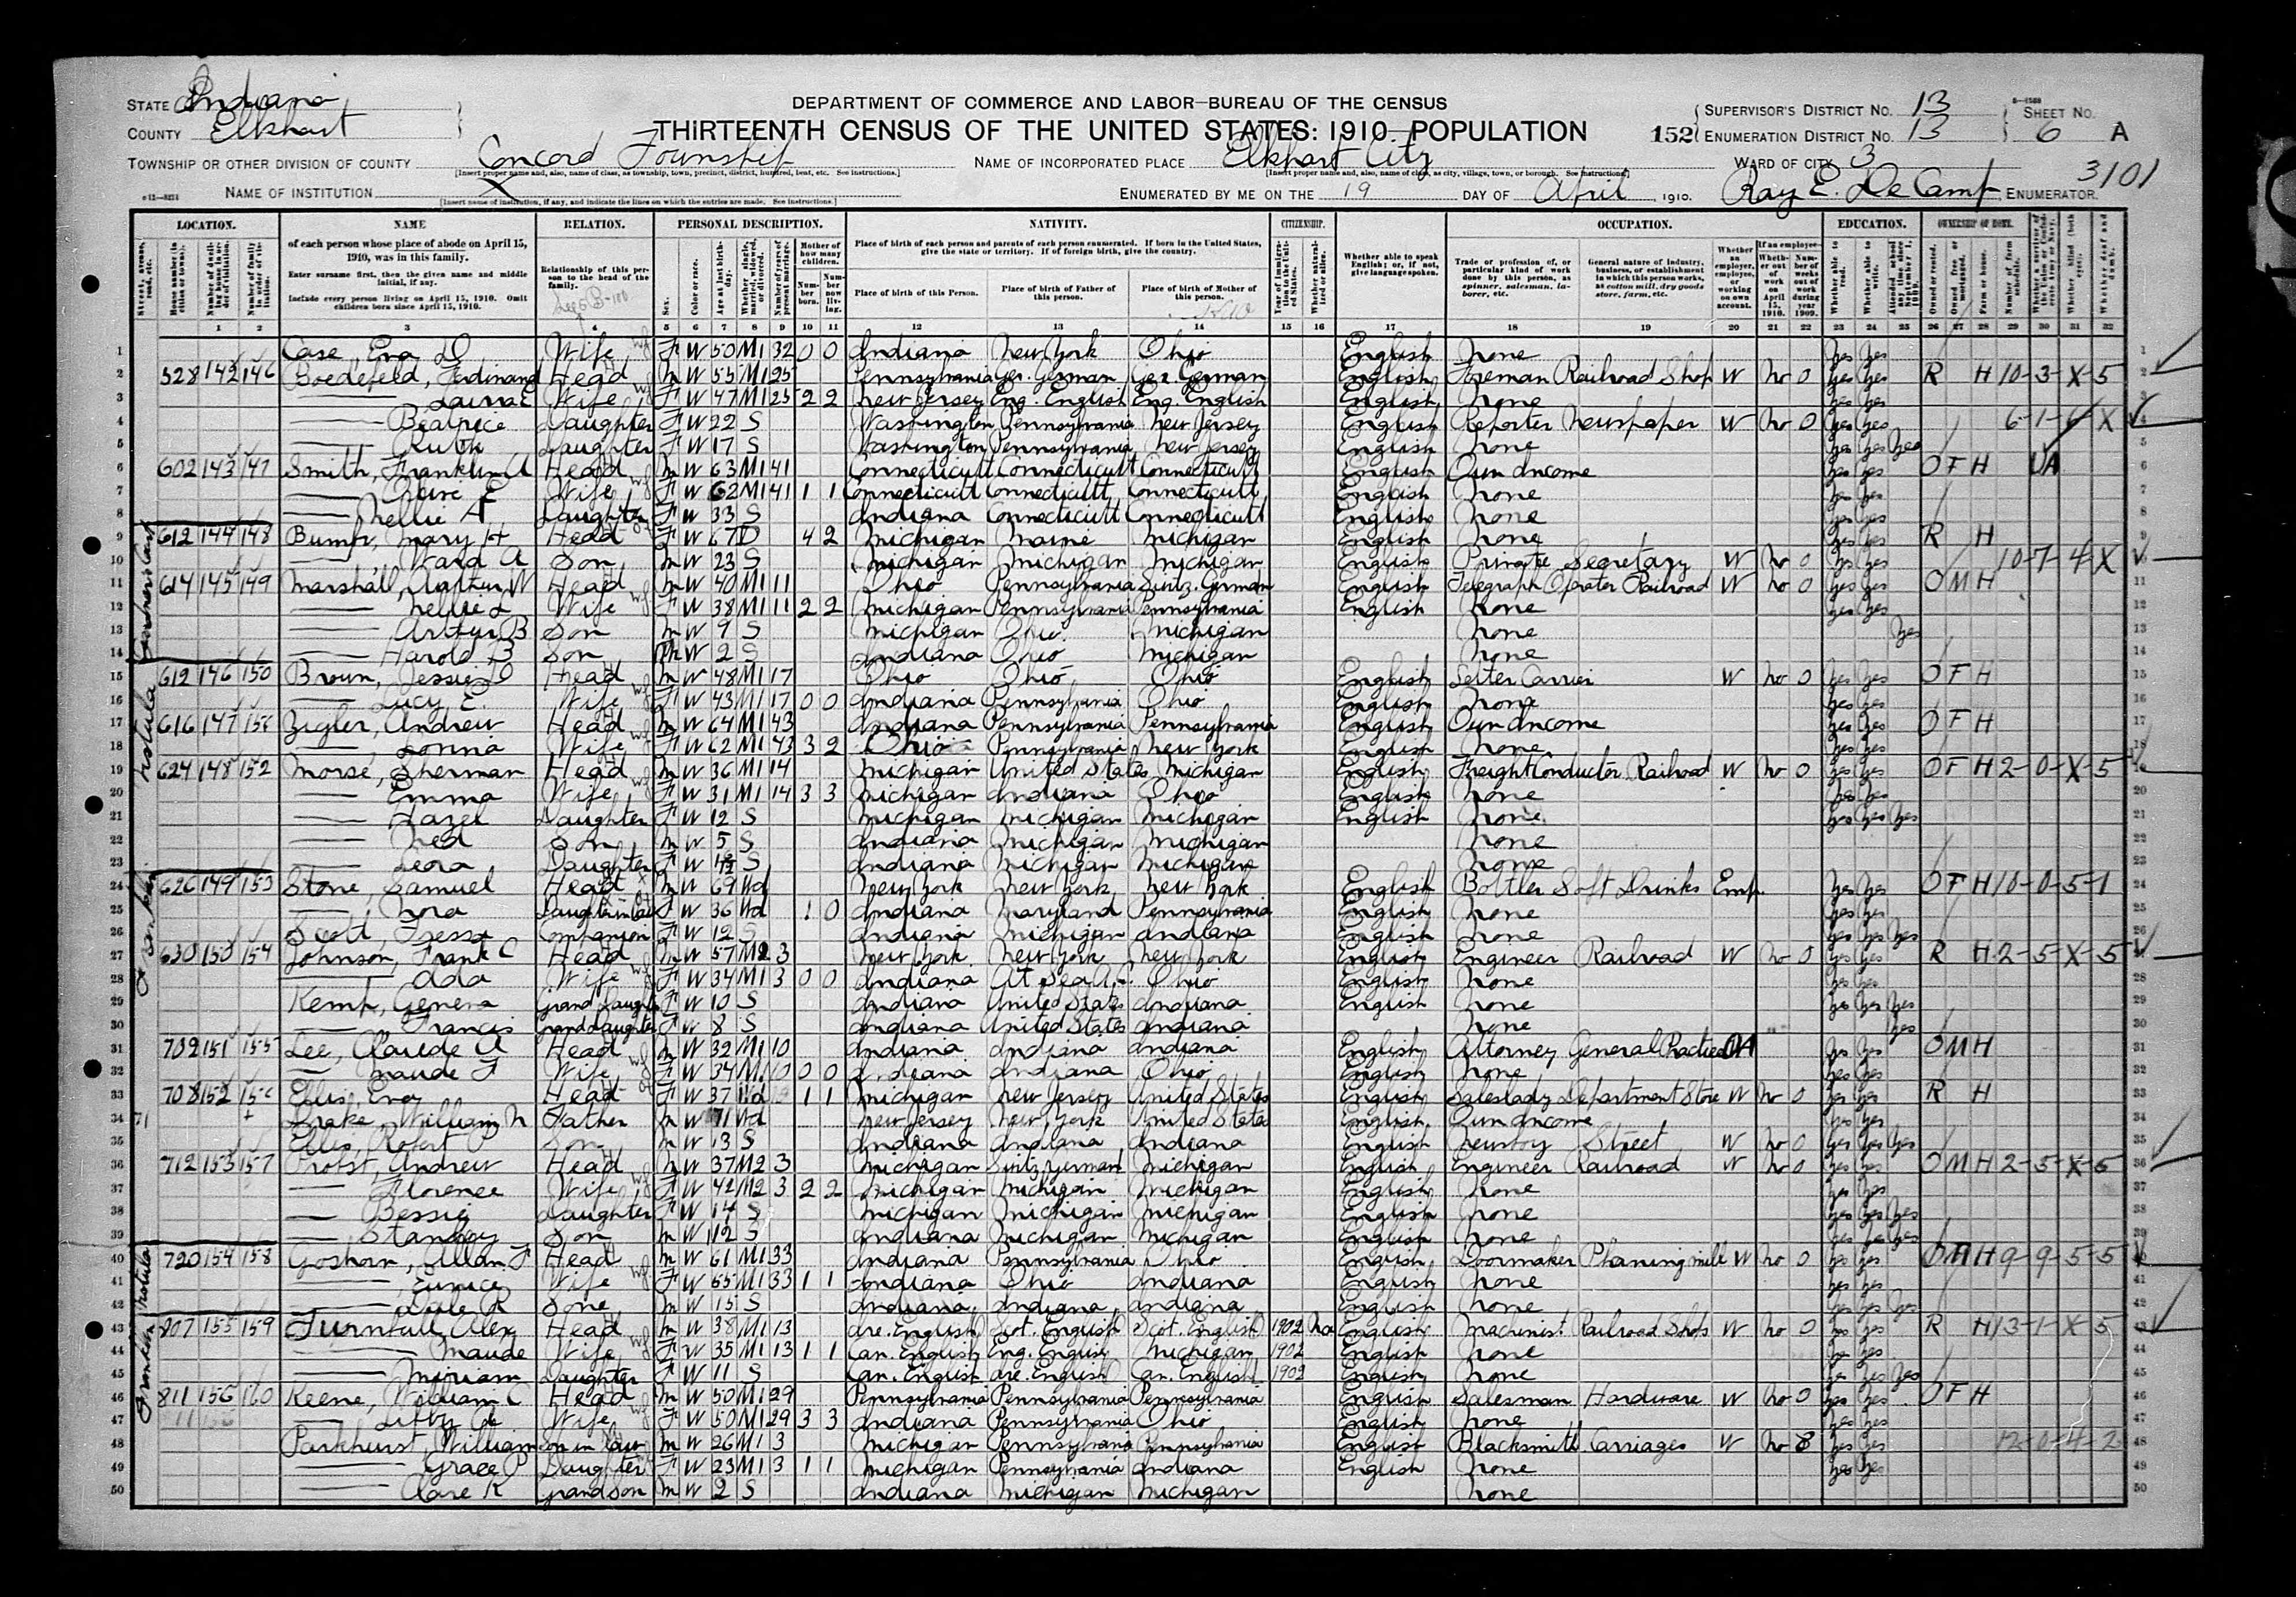 STATE Indiana
COUNTY Elkhart
DEPARTMENT OF COMMERCE AND LABOR—BUREAU OF THE CENSUS
THIRTEENTH CENSUS OF THE UNITED STATES: 1910 POPULATION
SUPERVISOR'S DISTRICT NO. 13
ENUMERATION DISTRICT NO. 13
152
SHEET NO. 6 A
TOWNSHIP OR OTHER DIVISION OF COUNTY Concord Township
NAME OF INCORPORATED PLACE Elkhart City
WARD OF CITY 3
3101
NAME OF INSTITUTION X
ENUMERATED BY ME ON THE 19 DAY OF April, 1910. Ray E. DeCamp, ENUMERATOR.
LOCATION. NAME RELATION. PERSONAL DESCRIPTION. NATIVITY. CITIZENSHIP. OCCUPATION. EDUCATION. OWNERSHIP OF HOME.
of each person whose place of abode on April 15, 1910, was in this family.
Enter surname first, then the given name and middle initial, if any.
Include every person living on April 15, 1910. Omit children born since April 15, 1910.
Relationship of this person to the head of the family.
Place of birth of each person and parents of each person enumerated. If born in the United States, give the state or territory. If of foreign birth, give the country.
Place of birth of this Person. Place of birth of Father of this person. Place of birth of Mother of this person.
Whether able to speak English; or, if not, give language spoken.
Trade or profession of, or particular kind of work done by this person, as spinner, salesman, laborer, etc.
General nature of industry, business, or establishment in which this person works, as cotton mill, dry goods store, farm, etc.
1 Case Eva D Wife F W 50 M1 32 0 0 Indiana New York Ohio English None Yes Yes
2 528 142 146 Boedefeld, Ferdinand Head M W 55 M1 25 Pennsylvania Ger. German Ger. German English Foreman Railroad Shop W No 0 Yes Yes R H 10-3-X-5
3 Laura E Wife F W 47 M1 25 2 2 New Jersey Eng. English Eng. English English None Yes Yes
4 Beatrice Daughter F W 22 S Washington Pennsylvania New Jersey English Reporter Newspaper W No 0 Yes Yes
5 Ruth Daughter F W 17 S Washington Pennsylvania New Jersey English None Yes Yes Yes
6 602 143 147 Smith, Franklin A Head M W 63 M1 41 Connecticutt Connecticutt Connecticutt English Own Income Yes Yes O F H UA
7 Olive E Wife F W 62 M1 41 1 1 Connecticutt Connecticutt Connecticutt English None Yes Yes
8 Nellie A Daughter F W 33 S Indiana Connecticutt Connecticutt English None Yes Yes
9 612 144 148 Bump, Mary H Head F W 67 D 4 2 Michigan Maine Michigan English None Yes Yes R H
10 Ward A Son M W 23 S Michigan Michigan Michigan English Private Secretary W No 0 Yes Yes 10-7-4-X
11 614 145 149 Marshall, Arthur W Head M W 40 M1 11 Ohio Pennsylvania Switz. German English Telegraph Operator Railroad W No 0 Yes Yes O M H
12 Nellie L Wife F W 38 M1 11 2 2 Michigan Pennsylvania Pennsylvania English None Yes Yes
13 Arthur B Son M W 9 S Michigan Ohio Michigan None Yes
14 Harold B Son M W 2 S Indiana Ohio Michigan None
15 612 146 150 Brown, Jessie D Head M W 48 M1 17 Ohio Ohio Ohio English Letter Carrier W No 0 Yes Yes O F H
16 Lucy E. Wife F W 43 M1 17 0 0 Indiana Pennsylvania Ohio English None Yes Yes
17 616 147 Zigler, Andrew Head M W 64 M1 43 Indiana Pennsylvania Pennsylvania English Own Income Yes Yes O F H
18 Wife F W 62 M1 43 3 2 Ohio Pennsylvania New York English None Yes Yes
19 624 148 152 Morse, Sherman Head M W 36 M1 14 Michigan United States Michigan English Freight Conductor Railroad W No 0 Yes Yes O F H 2-0-X-5
20 Emma Wife F W 31 M1 14 3 3 Michigan Indiana Ohio English None Yes Yes
21 Hazel Daughter F W 12 S Michigan Michigan Michigan English None Yes Yes Yes
22 Son M W 5 S Indiana Michigan Michigan None
23 Leora Daughter F W S Indiana Michigan Michigan None
24 626 149 153 Stone, Samuel Head M W 69 Wd New York New York New York English Bottler Soft Drinks Emp. Yes Yes O F H 10-0-5-1
25 Nora Daughter in law F W 36 Wd 1 0 Indiana Maryland Pennsylvania English None Yes Yes
26 Scott, Companion F W 12 S Indiana Michigan Indiana English None Yes Yes Yes
27 630 150 154 Johnson, Frank C Head M W 57 M2 3 New York New York New York English Engineer Railroad W No 0 Yes Yes R H 2-5-X-5
28 Ada Wife F W 34 M1 3 0 0 Indiana At Sea Ohio English None Yes Yes
29 Kemp, Geneva Grand Daughter F W 10 S Indiana United States Indiana English None Yes Yes Yes
30 Francis Grand Daughter F W 8 S Indiana United States Indiana None Yes
31 702 151 155 Lee, Claude A Head M W 32 M1 10 Indiana Indiana Indiana English Attorney General Practice OA Yes Yes O M H
32 Maude F Wife F W 34 M1 10 0 0 Indiana Indiana Ohio English None Yes Yes
33 708 152 Ellis, Eva Head F W 37 Wd 1 1 Michigan New Jersey United States English Saleslady Department Store W No 0 Yes Yes R H
34 Drake, William N Father M W 71 Wd New Jersey New York United States English Own Income Yes Yes
35 Ellis, Robert P Son M W 13 S Indiana Indiana Indiana English Newsboy Street W No 0 Yes Yes Yes
36 712 153 157 Probst, Andrew Head M W 37 M2 3 Michigan Switz. German Michigan English Engineer Railroad W No 0 Yes Yes O M H 2-5-X-5
37 Florence Wife F W 42 M2 3 2 2 Michigan Michigan Michigan English None Yes Yes
38 Bessie Daughter F W 14 S Michigan Michigan Michigan English None Yes Yes Yes
39 Stanley Son M W 12 S Indiana Michigan Michigan English None Yes Yes Yes
40 720 154 158 Goshorn, Allan F Head M W 61 M1 33 Indiana Pennsylvania Ohio English Doormaker Planing mill W No 0 Yes Yes O M H 9-9-5-5
41 Eunice Wife F W 55 M1 33 1 1 Indiana Ohio Indiana English None Yes Yes
42 Son M W 15 S Indiana Indiana Indiana English None Yes Yes Yes
43 807 155 159 Turnbull Alex Head M W 38 M1 13 Ire. English Scot. English Scot. English 1902 Na English Machinist Railroad Shops W No 0 Yes Yes R H 13-1-X-5
44 Maude Wife F W 35 M1 13 1 1 Can. English Eng. English Michigan 1902 English None Yes Yes
45 Miriam Daughter F W 11 S Can. English Ire. English Can. English 1902 English None Yes Yes Yes
46 811 156 160 Keene, William C Head M W 50 M1 29 Pennsylvania Pennsylvania Pennsylvania English Salesman Hardware W No 0 Yes Yes O F H
47 Libby A Wife F W 50 M1 29 3 3 Indiana Pennsylvania Ohio English None Yes Yes
48 Parkhurst, William Son in law M W 26 M1 3 Michigan Pennsylvania Pennsylvania English Blacksmith Carriages W No 8 Yes Yes 12-0-4-2
49 Grace P Daughter F W 23 M1 3 1 1 Michigan Pennsylvania Indiana English None Yes Yes
50 Clare K Grandson M W 2 S Indiana Michigan Michigan None